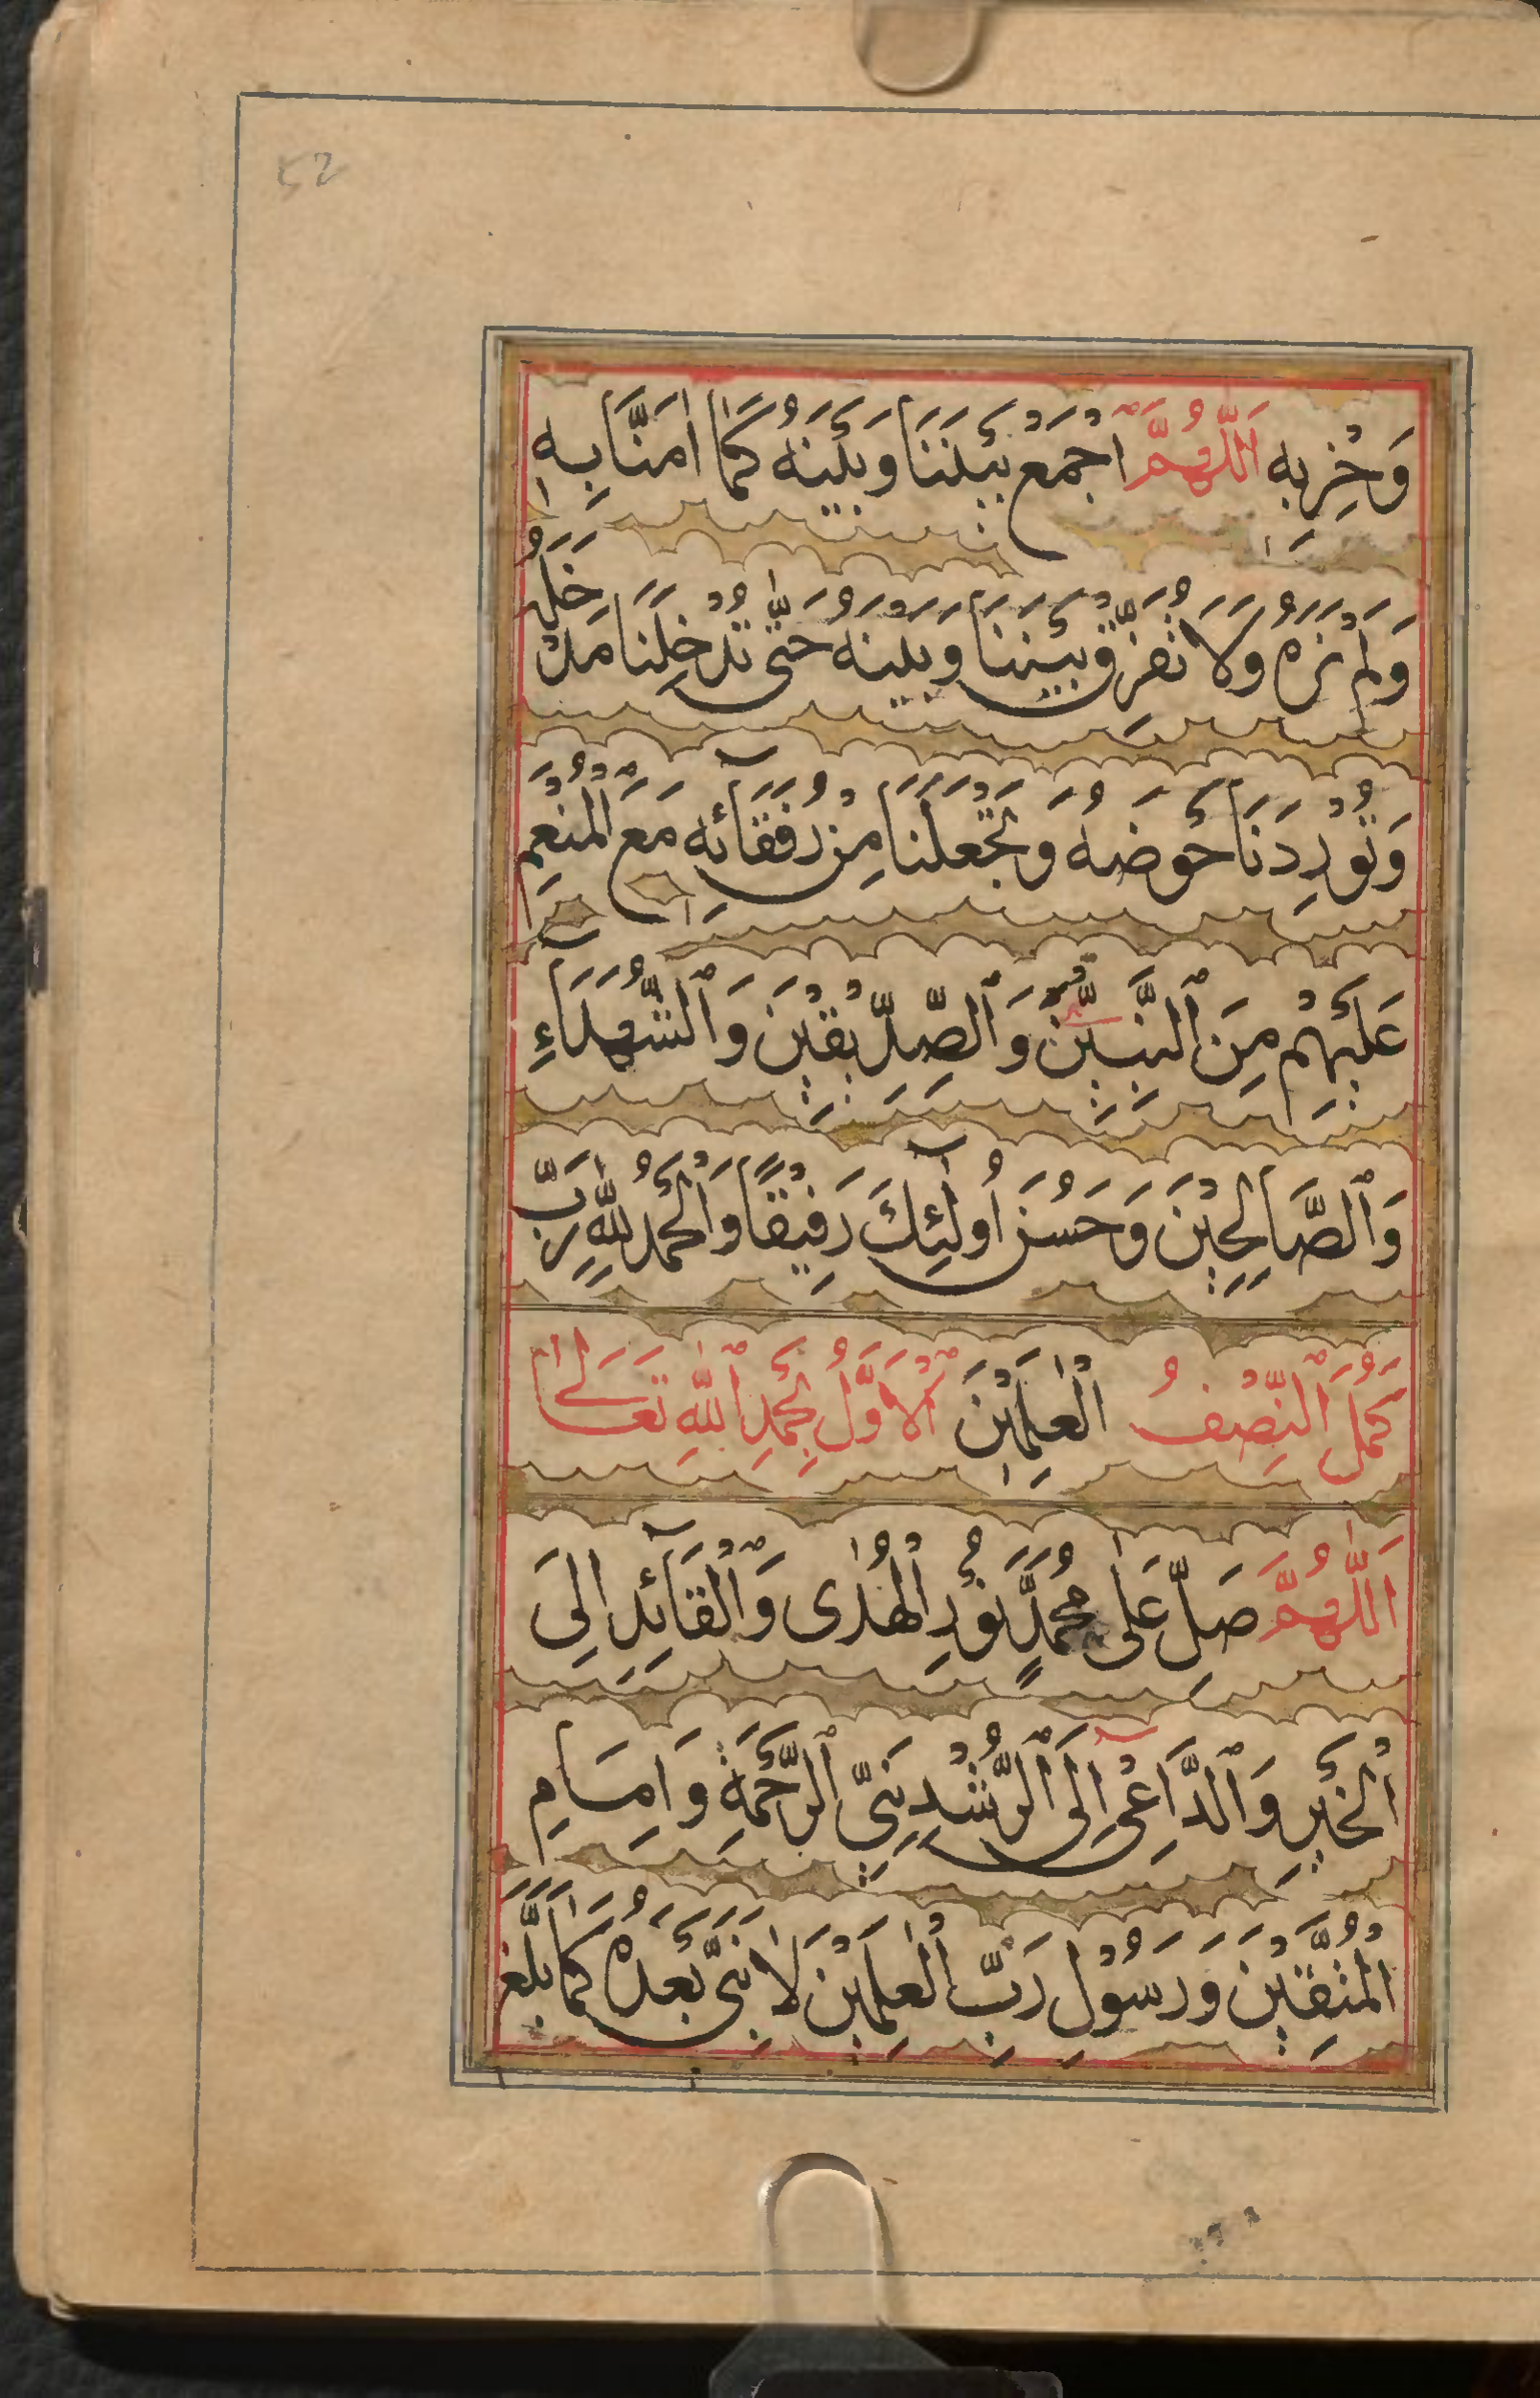 52
وَحِزْبِهٖ اَللّٰهُمَّ اجْمَعْ بَيْنَنَا وَبَيْنَهُ كَمَا اٰمَنَّا بِهٖ
وَلَمْ نَرَهُ وَلَا تُفَرِّقْ بَيْنَنَا وَبَيْنَهُ حَتّٰى تُدْخِلَنَا مَدْخَلَهُ
وَتُوْرِدَنَا حَوْضَهُ وَتَجْعَلَنَا مِنْ رُفَقَآئِهٖ مَعَ الْمُنْعَمِ
عَلَيْهِمْ مِنَ ٱلنَّبِيِّيْنَ وَٱلصِّدِّيْقِيْنَ وَٱلشُّهَدَآءِ
وَٱلصَّالِحِيْنَ وَحَسُنَ اُولٰٓئِكَ رَفِيْقًا وَالْحَمْدُ لِلّٰهِ رَبِّ
كَمُلَ ٱلنِّصْفُ الْعٰلَمِيْنَ ٱلْاَوَّلُ بِحَمْدِ ٱللّٰهِ تَعَالٰى
اَللّٰهُمَّ صَلِّ عَلٰى مُحَمَّدٍ نُوْرِ الْهُدٰى وَٱلْقَآئِدِ اِلَى
اْلخَيْرِ وَٱلدَّاعِيْ اِلَى ٱلرُّشْدِ نَبِيِّ ٱلرَّحْمَةِ وَاِمَامِ
الْمُتَّقِيْنَ وَرَسُوْلِ رَبِّ الْعٰلَمِيْنَ لَا نَبِيَّ بَعْدَهُ كَمَا بَلَّغَ